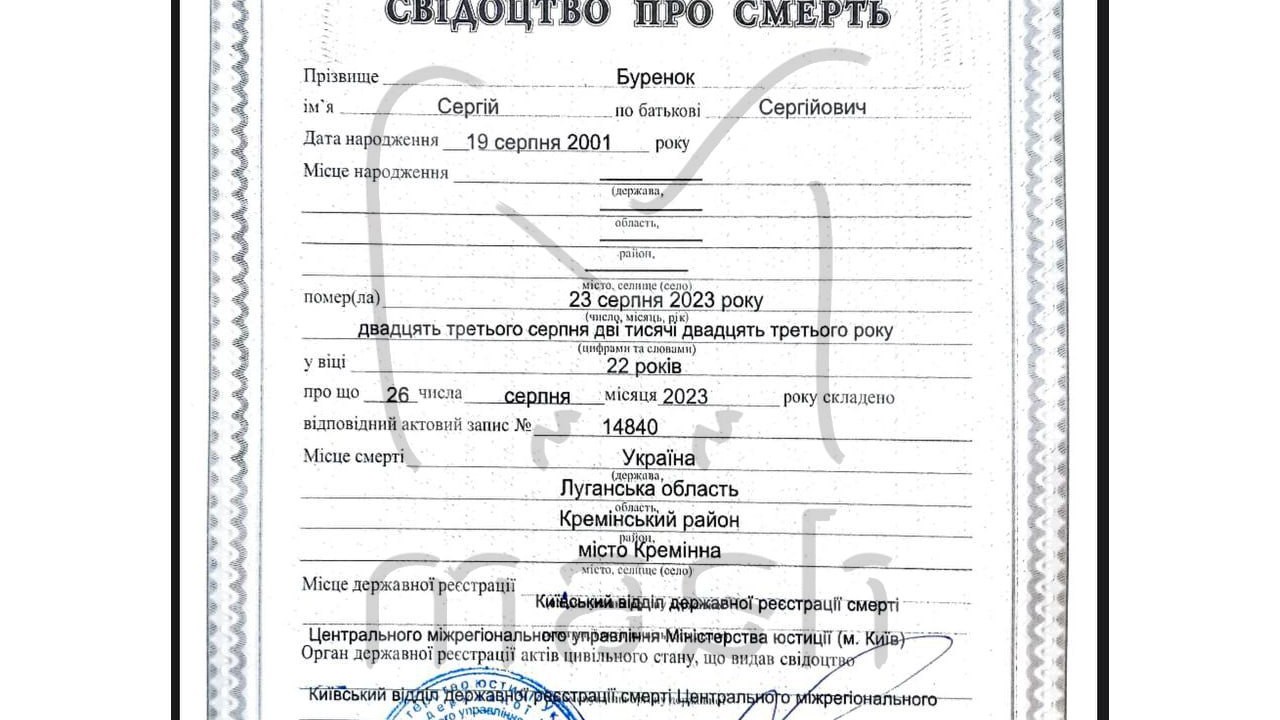 СВІДОЦТВО ПРО СМЕРТЬ
Прізвище Буренок
ім`я Сергій по батькові Сергійович
Дата народження 19 серпня 2001 року
Місце народження
(держава,
область,
район,
місто, селище (село)
помер(ла) 23 серпня 2023 року
(число, місяць, рік)
двадцять третього серпня дві тисячі двадцять третього року
(цифрами та словами)
у віці 22 років
про що 26 числа серпня місяця 2023 року складено
відповідний актовий запис № 14840
Місце смерті Україна
(держава,
Луганська область
область,
Кремінський район
район,
місто Кремінна
місто, селище (село)
mash
Місце державної реєстрації
Київський відділ державної реєстрації смерті
Центрального міжрегіонального управління Міністерства юстиції (м. Київ)
Орган державної реєстрації актів цивільного стану, що видав свідоцтво
Київський відділ державної реєстрації смерті Центрального міжрегіонального